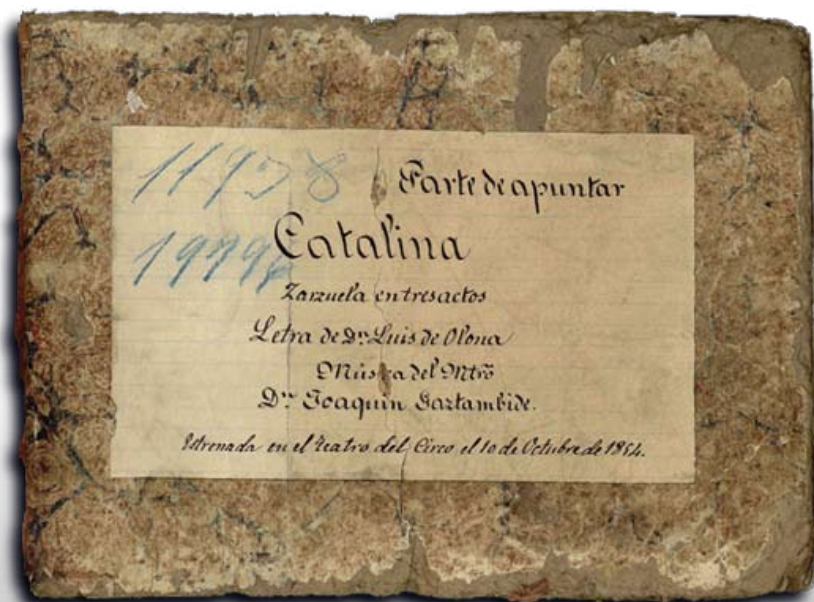 11938 Parte de apuntar
Catalina
Zarzuela en tres actos
Letra de Dn. Luis de Olona
Música del Mtrō
Dn. Joaquin Gaztambide.
Estrenada en el Teatro del Circo el 10 de Octubre de 1854.